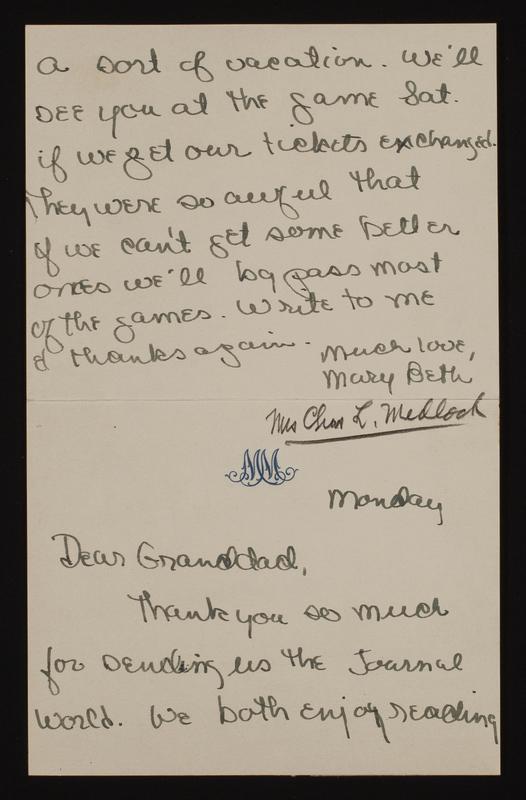 a sort of vacation. We'll
see you at the game Sat.
if we get our tickets exchanged.
They were so awful that
if we can't get some better
ones we'll by pass most
of the games. Write to me
& thanks again.
Much love,
Mary Beth
Mrs Chas L. Medlock
Monday
Dear Granddad,
Thank you so much
for sending us the Journal
World. We both enjoy reading